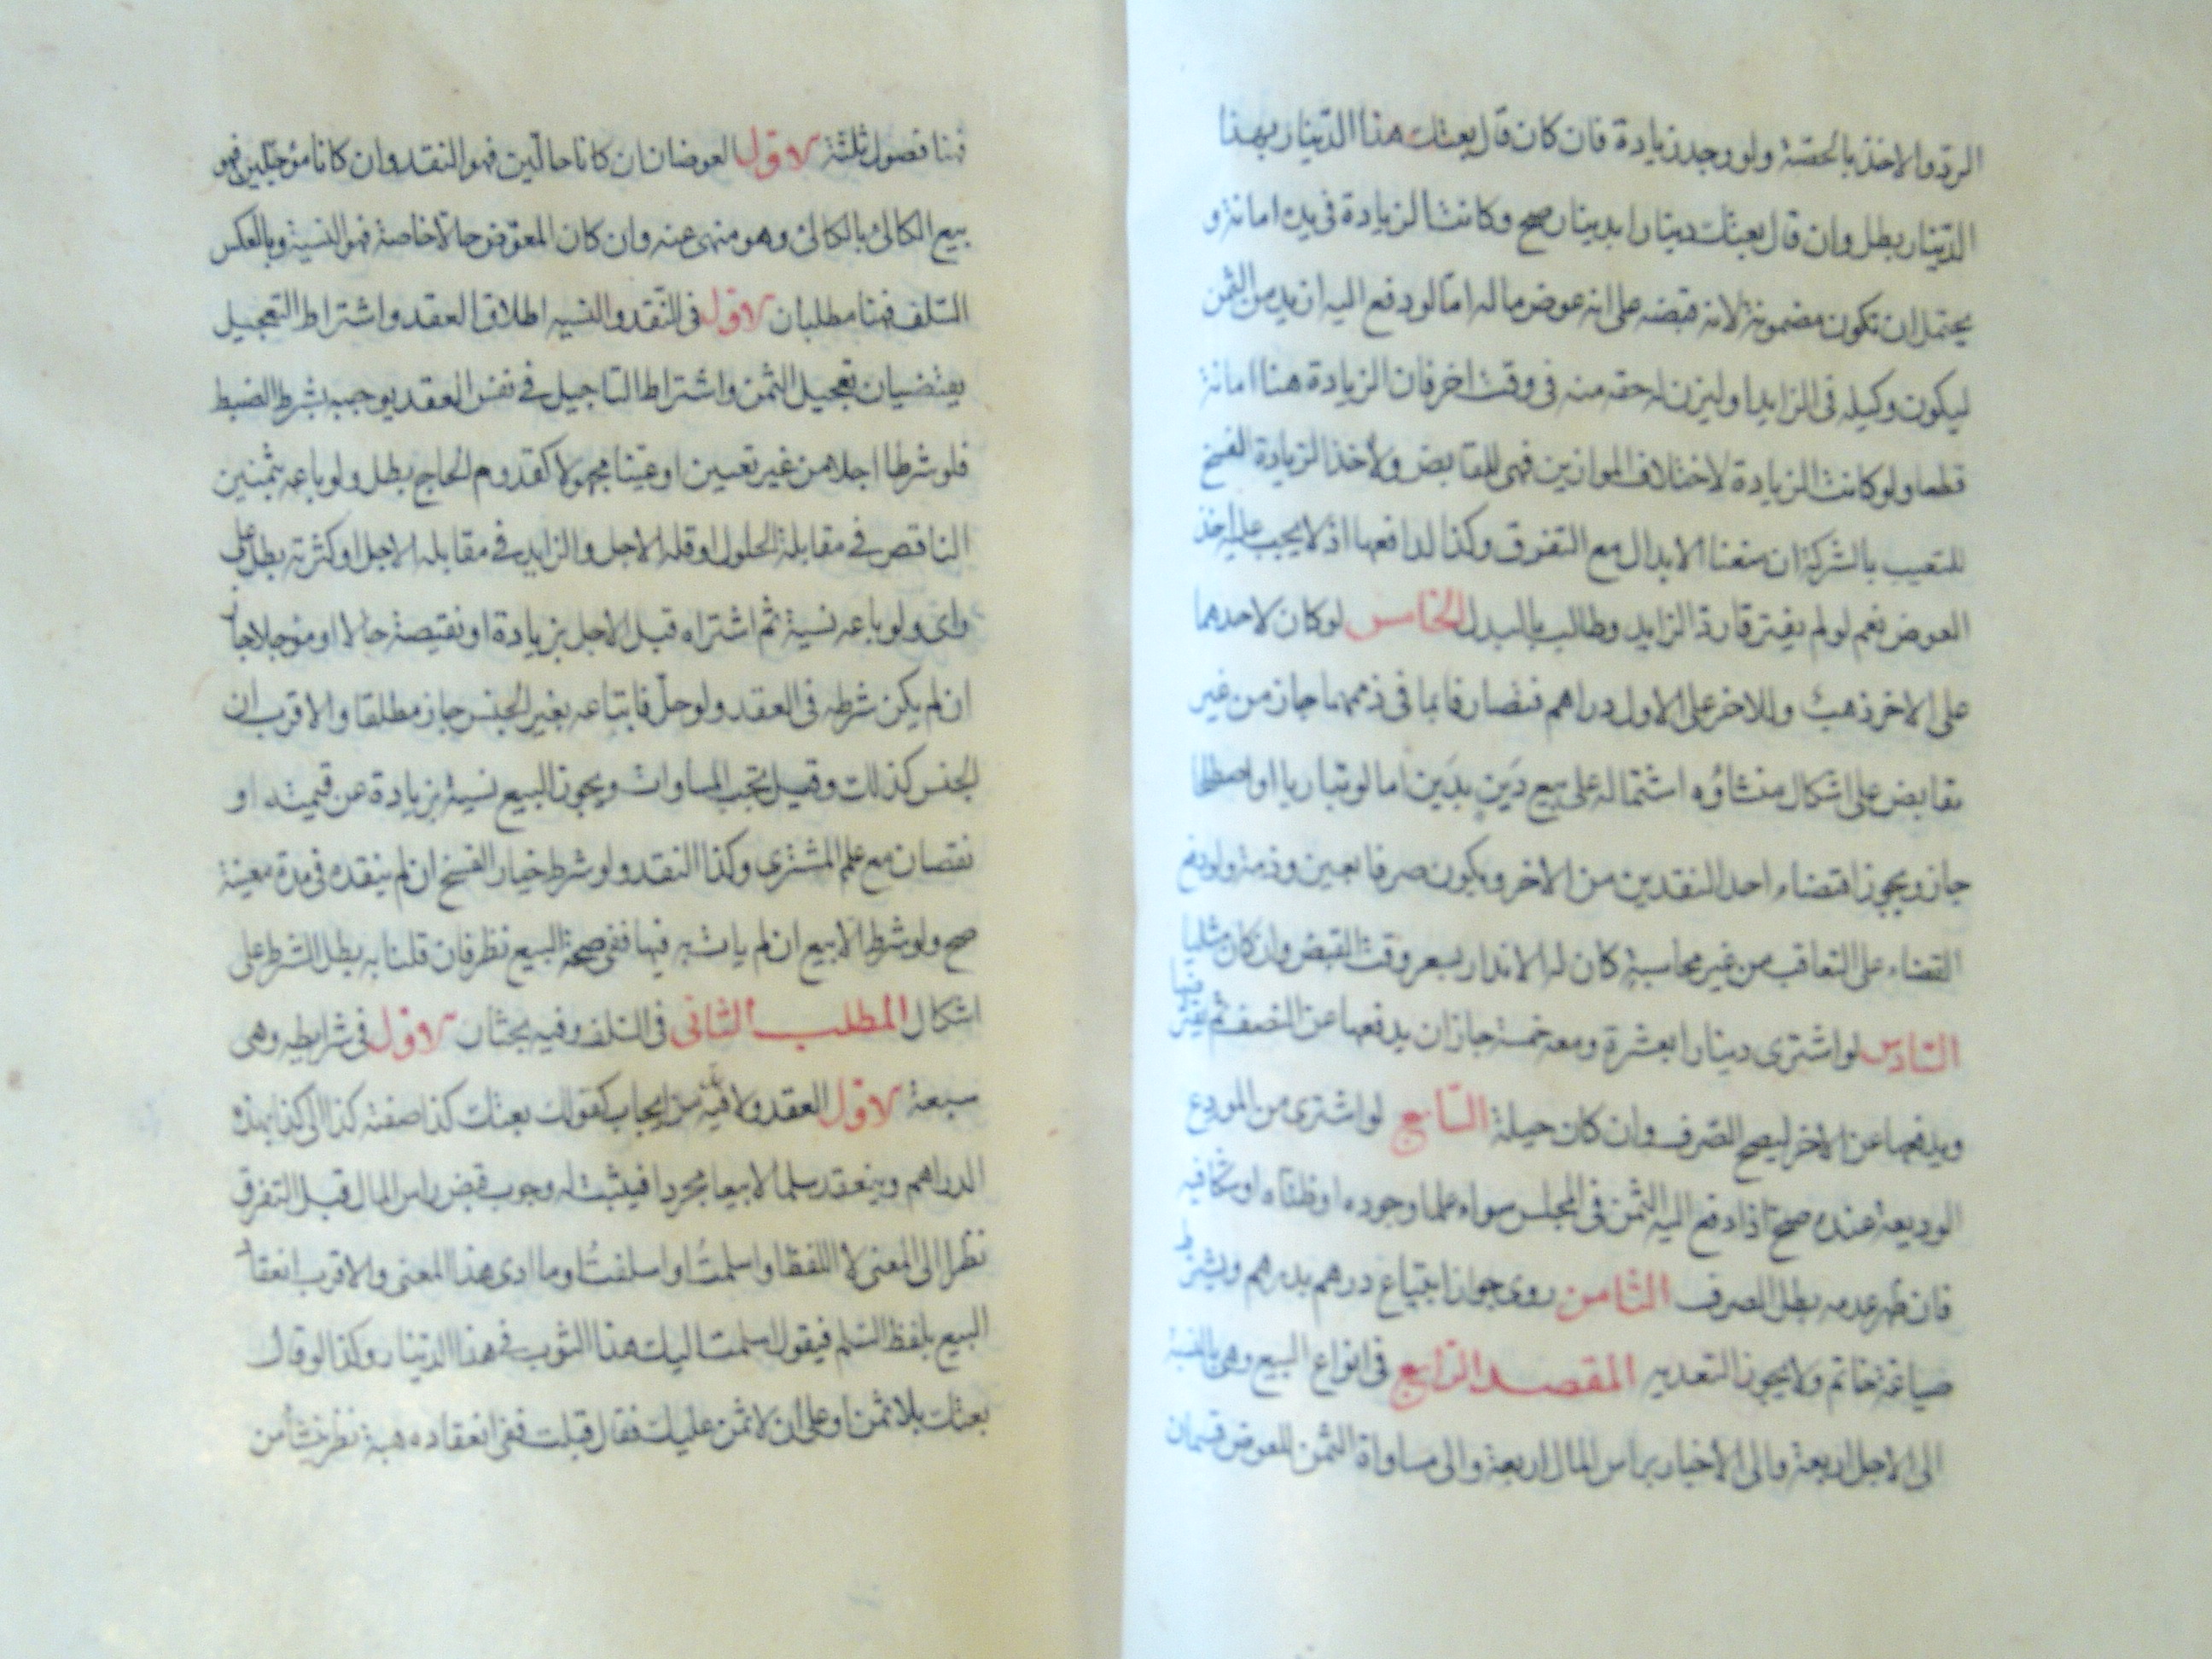 الرد والاخذ بالحصة ولو وجد زيادة فان كان قال بعتك هذا الدينار بهذا
الدينار بطل وان قال بعتك دينارا بدينار صح وكانت الزيادة فى يده امانة و
يحتمل ان تكون مضمونة لانه قبضه على انه عوض ماله اما لو دفع اليه ازيد من الثمن
ليكون وكيله فى الزايد او ليزن له حقه منه فى وقت اخر فان الزيادة هنا امانة
قطعا ولو كانت الزيادة لاختلاف الموازين فهى للقابض ولأخذ الزيادة الفسخ
للتعيب بالشركة ان منعنا الابدال مع التفرق وكذا لدافعها اذ لا يجب عليه اخذ
العوض نعم لو لم يفترقا رد الزايد وطالب بالبدل الخامس لو كان لاحدهما
على الاخر ذهب وللاخر على الاول دراهم فتصارفا بما فى ذممهما جاز من غير
تقابض على اشكال منشاؤه اشتماله على بيع دين بدين اما لو تباريا او اصطلحا
جاز ويجوز اقتضاء احد النقدين من الآخر ويكون صرفا بعين وذمة ولو دفع
القضاء على التعاقب من غير محاسبة كان له الاندار بسعر وقت القبض وان كان مثليا
السادس لو اشترى دينارا بعشرة ومعه خمسة جاز ان يدفعها عن النصف ثم يقترضها
ويدفعها عن الاخر ليصح الصرف وان كان حيلة السابع لو اشترى من المودع
الوديعة عنده صح اذا دفع اليه الثمن فى المجلس سواء علما وجوده او ظناه او شكا فيه
فان ظهر عدمه بطل الصرف الثامن روى جواز ابتياع درهم بدرهم ويشترط
صياغة خاتم ولا يجوز التعديه المقصد الرابع فى انواع البيع وهى بالنسبة
الى الاجل اربعة والى الأخبار براس المال اربعة والى مساواة الثمن للعوض قسمان
فهنا فصول ثلثة الاول العوضان ان كانا حالين فهو النقد وان كانا مؤجلين فهو
بيع الكالئ بالكالئ وهو منهى عنه وان كان المعوض حالا خاصة فهو النسية وبالعكس
السلف فهنا مطلبان الاول فى النقد والنسيه اطلاق العقد واشتراط التعجيل
يقتضيان تعجيل الثمن واشتراط التاجيل فى نفس العقد يوجبه بشرط الضبط
فلو شرطا اجلا من غير تعيين او عينا مجهولا كقدوم الحاج بطل ولو باعه بثمنين
الناقص فى مقابلة الحلول او قلة الاجل والزايد فى مقابله الاجل او كثرته بطل على
راى ولو باعه نسية ثم اشتراه قبل الاجل بزيادة او نقيصة حالا او مؤجلا جاز
ان لم يكن شرطه فى العقد ولو حل فابتاعه بغير الجنس جاز مطلقا والاقرب ان
الجنس كذلك وقيل تجب المساوات ويجوز البيع نسية بزيادة عن قيمته او
نقصان مع علم المشترى وكذا النقد ولو شرط خيار الفسخ ان لم ينقده فى مدة معينة
صح ولو شرط الا بيع ان لم يات به فيها ففى صحة البيع نظر فان قلنا به بطل الشرط على
اشكال المطلب الثانى فى السلف وفيه بحثان الاول فى شرايطه وهى
سبعة الاول العقد ولا بد فيه من ايجاب كقولك بعتك كذا صفته كذا الى كذا بهذه
الدراهم وينعقد سلما لا بيعا مجردا فيثبت له وجوب قبض راس المال قبل التفرق
نظرا الى المعنى لا اللفظ او اسلمت او اسلفت او ما ادى هذا المعنى والاقرب انعقاد
البيع بلفظ السلم فيقول اسلمت اليك هذا الثوب فى هذا الدينار وكذا لو قال
بعتك بلا ثمن او على ان لا ثمن عليك فقال قبلت ففى انعقاده هبة نظر ينشأ من